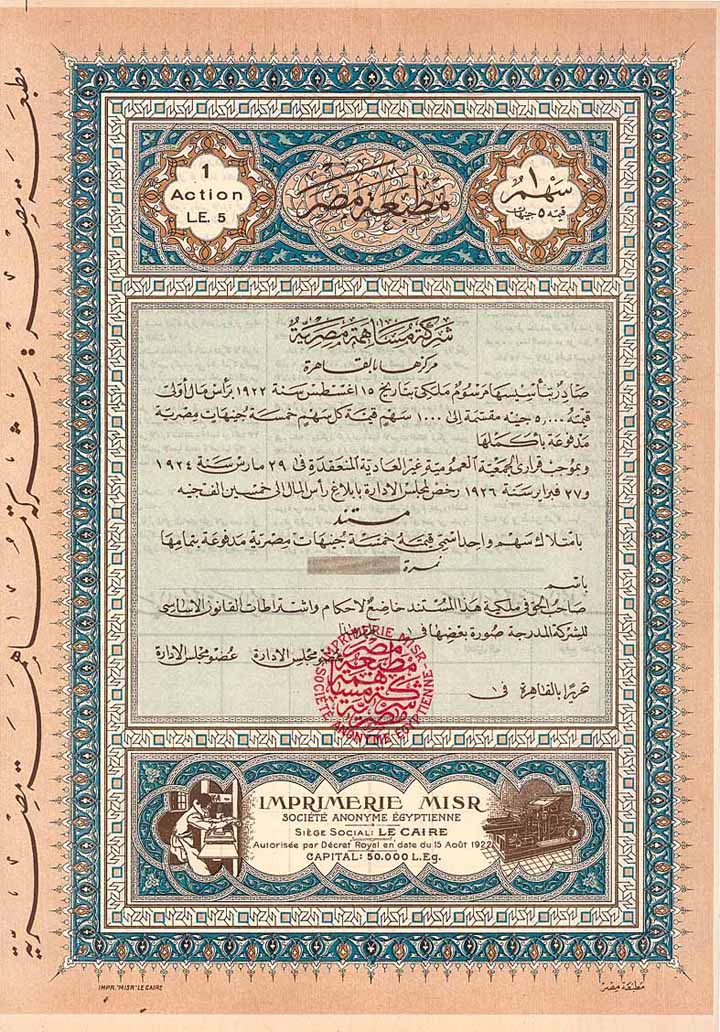 1
Action
L.E. 5
مطبعة مصر
١
سهم
قيمته ٥ جنيهات
شركة مساهمة مصرية
مركزها بالقاهرة
صادر بتأسيسها مرسوم ملكى بتاريخ ١٥ اغسطس سنة ١٩٢٢ برأس مال أولى
قيمته ٥,٠٠٠ جنيه مقسمة إلى ١٠٠٠ سهم قيمة كل سهم خمسة جنيهات مصرية
مدفوعة بأكملها
وبموجب قرارى الجمعية العمومية غير العادية المنعقدة فى ٢٩ مارس سنة ١٩٢٤
و ٢٧ فبراير سنة ١٩٢٦ رخص لمجلس الادارة بابلاغ رأس المال الى خمسين الف جنيه
مستند
بامتلاك سهم واحد اسمى قيمته خمسة جنيهات مصرية مدفوعة بتمامها
نمرة
باسم
صاحب الحق فى ملكية هذا المستند خاضع لاحكام واشتراطات القانون الاساسى
للشركة المدرجة صورة بعضها فى
عضو مجلس الادارة عضو مجلس الادارة
تحريرا بالقاهرة فى ١
IMPRIMERIE MISR
SOCIÉTÉ ANONYME EGYPTIENNE
مطبعة مصر
شركة مساهمة
مصرية
IMPRIMERIE MISR
SOCIÉTÉ ANONYME ÉGYPTIENNE
SIÈGE SOCIAL: LE CAIRE
Autorisée par Décrat Royal en date du 15 Août 1922
CAPITAL: 50.000 L.Eg.
IMPR. "MISR" LE CAIRE
مطبعة مصر
مطبعة مصر شركة مساهمة مصرية